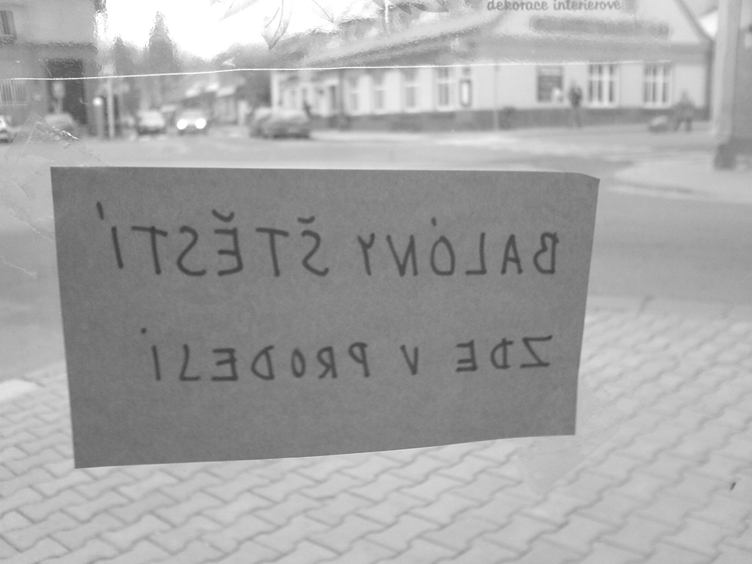 dekorace interiérové
BALÓNY ŠTĚSTÍ
ZDE V PRODEJI